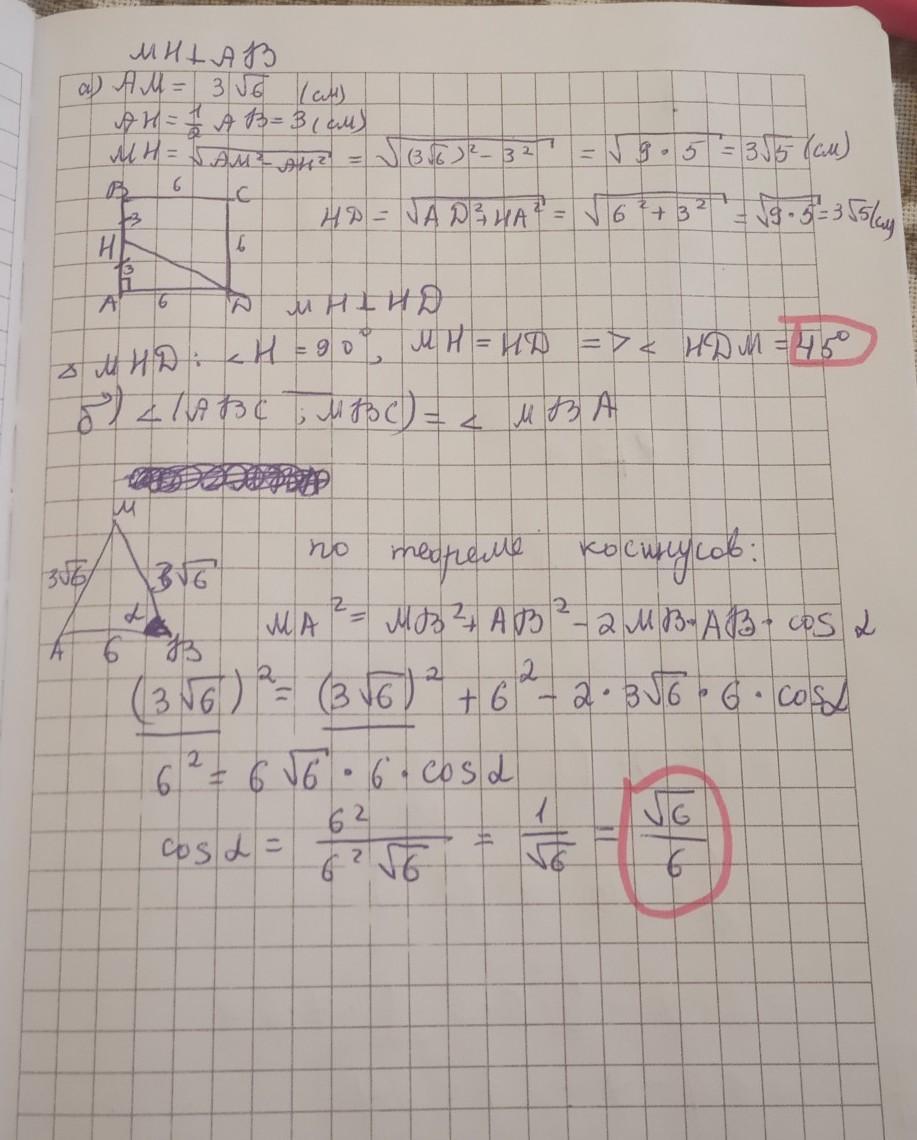 MH⊥AB
а) AM = 3√6 (см)
AH = 1/2 AB = 3 (см)
MH = √(AM² - AH²) = √((3√6)² - 3²) = √(9 · 5) = 3√5 (см)
B 6 C
3
H
3
6
A 6 D
HD = √(AD² + HA²) = √(6² + 3²) = √(9·5) = 3√5 (см)
MH⊥HD
△ MHD: <H = 90°, MH = HD => < HDM = 45°
б) < (ABC ; MBC) = < MBA
M
3√6 3√6
α
A 6 B
по теореме косинусов:
MA² = MB² + AB² - 2 MB · AB · cos α
(3√6)² = (3√6)² + 6² - 2 · 3√6 · 6 · cos α
6² = 6√6 · 6 · cos α
cos α = 6²/(6²√6) = 1/√6 = √6/6